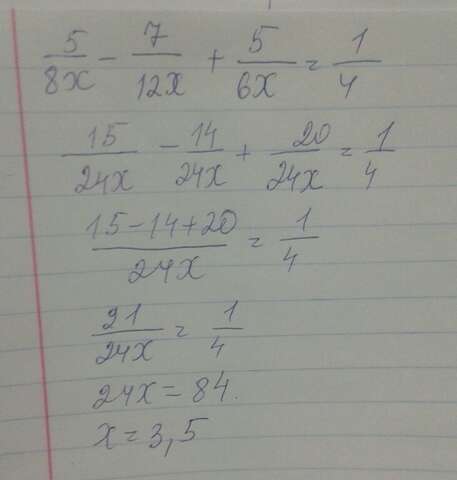 5/8x - 7/12x + 5/6x = 1/4
15/24x - 14/24x + 20/24x = 1/4
15-14+20/24x = 1/4
21/24x = 1/4
24x = 84.
x = 3,5